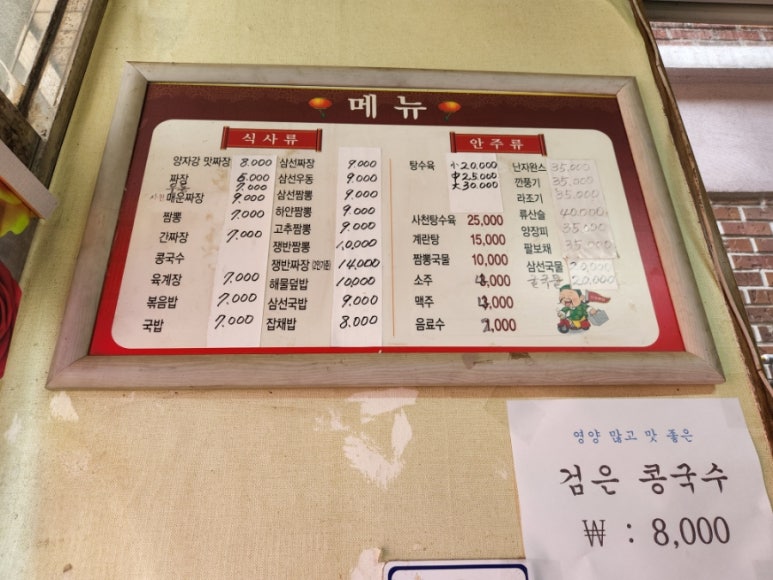 메뉴
식사류
양자강 맛짜장 8.000
짜장 6.000
우동 7.000
매운짜장 9.000
짬뽕 7.000
간짜장 7.000
콩국수
육계장 7.000
볶음밥 7.000
국밥 7.000
삼선짜장 9.000
삼선우동 9.000
삼선짬뽕 9.000
하얀짬뽕 9.000
고추짬뽕 9.000
쟁반짬뽕 10,000
쟁반짜장 (2인기준) 14,000
해물덮밥 10,000
삼선국밥 9.000
잡채밥 8.000
안주류
탕수육 小 20,000
中 25,000
大 30,000
사천탕수육 25,000
계란탕 15,000
짬뽕국물 10,000
소주
맥주
음료수
난자완스 35,000
깐풍기 35,000
라조기 35,000
류산슬 40,000
양장피 35,000
팔보채 35,000
삼선국물 20,000
굴국물 20,000
영양 많고 맛 좋은
검은 콩국수
₩ : 8,000